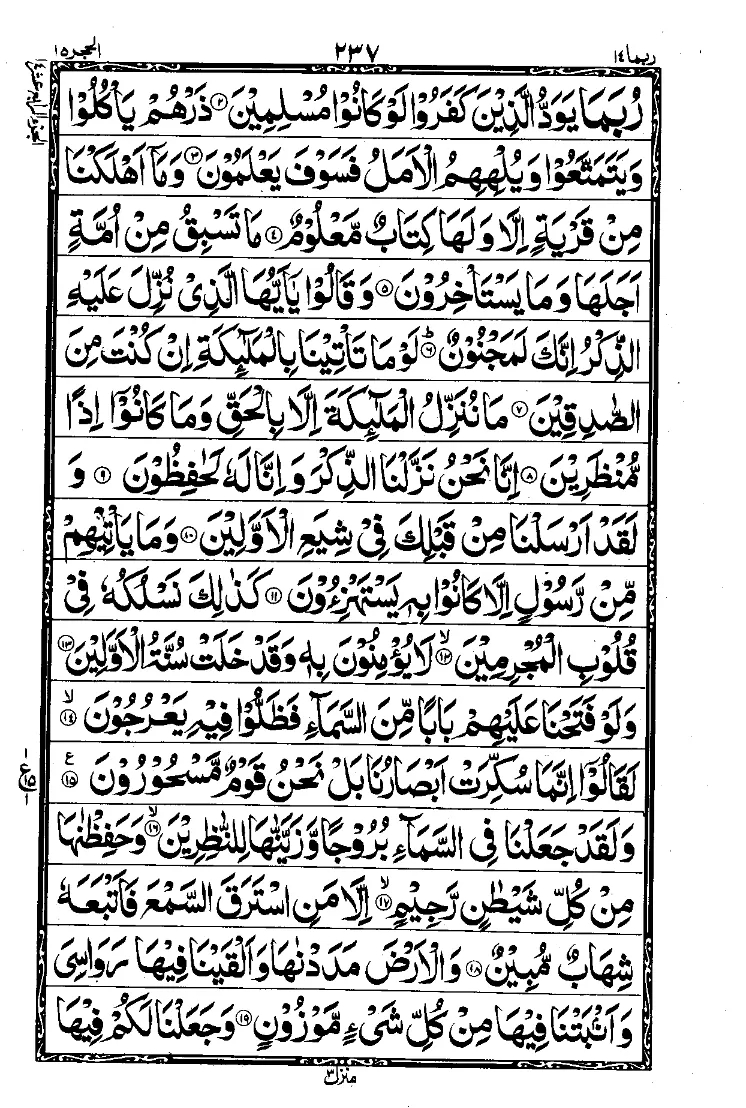 ربما١٤
٢٣٧
الحجر١٥
رُبَمَا يَوَدُّ الَّذِيْنَ كَفَرُوْا لَوْ كَانُوْا مُسْلِمِيْنَ ۝٢ ذَرْهُمْ يَاْكُلُوْا
وَيَتَمَتَّعُوْا وَيُلْهِهِمُ الْاَمَلُ فَسَوْفَ يَعْلَمُوْنَ ۝٣ وَمَاۤ اَهْلَكْنَا
مِنْ قَرْيَةٍ اِلَّا وَلَهَا كِتَابٌ مَّعْلُوْمٌ ۝٤ مَا تَسْبِقُ مِنْ اُمَّةٍ
اَجَلَهَا وَمَا يَسْتَاْخِرُوْنَ ۝٥ وَقَالُوْا يٰۤاَيُّهَا الَّذِىْ نُزِّلَ عَلَيْهِ
الذِّكْرُ اِنَّكَ لَمَجْنُوْنٌ ۝٦ؕ لَوْ مَا تَاْتِيْنَا بِالْمَلٰٓئِكَةِ اِنْ كُنْتَ مِنَ
الصّٰدِقِيْنَ ۝٧ مَا نُنَزِّلُ الْمَلٰٓئِكَةَ اِلَّا بِالْحَقِّ وَمَا كَانُوْۤا اِذًا
مُّنْظَرِيْنَ ۝٨ اِنَّا نَحْنُ نَزَّلْنَا الذِّكْرَ وَاِنَّا لَهٗ لَحٰفِظُوْنَ ۝٩ وَ
لَقَدْ اَرْسَلْنَا مِنْ قَبْلِكَ فِىْ شِيَعِ الْاَوَّلِيْنَ ۝١٠ وَمَا يَاْتِيْهِمْ
مِّنْ رَّسُوْلٍ اِلَّا كَانُوْا بِهٖ يَسْتَهْزِءُوْنَ ۝١١ كَذٰلِكَ نَسْلُكُهٗ فِىْ
قُلُوْبِ الْمُجْرِمِيْنَ ۝١٢ۙ لَا يُؤْمِنُوْنَ بِهٖ وَقَدْ خَلَتْ سُنَّةُ الْاَوَّلِيْنَ ۝١٣
وَلَوْ فَتَحْنَا عَلَيْهِمْ بَابًا مِّنَ السَّمَآءِ فَظَلُّوْا فِيْهِ يَعْرُجُوْنَ ۝١٤ۙ
لَقَالُوْۤا اِنَّمَا سُكِّرَتْ اَبْصَارُنَا بَلْ نَحْنُ قَوْمٌ مَّسْحُوْرُوْنَ ۝١٥ع
وَلَقَدْ جَعَلْنَا فِى السَّمَآءِ بُرُوْجًا وَّزَيَّنّٰهَا لِلنّٰظِرِيْنَ ۝١٦ۙ وَحَفِظْنٰهَا
مِنْ كُلِّ شَيْطٰنٍ رَّجِيْمٍ ۝١٧ۙ اِلَّا مَنِ اسْتَرَقَ السَّمْعَ فَاَتْبَعَهٗ
شِهَابٌ مُّبِيْنٌ ۝١٨ وَالْاَرْضَ مَدَدْنٰهَا وَاَلْقَيْنَا فِيْهَا رَوَاسِىَ
وَاَنْۢبَتْنَا فِيْهَا مِنْ كُلِّ شَىْءٍ مَّوْزُوْنٍ ۝١٩ وَجَعَلْنَا لَكُمْ فِيْهَا
منزل٣